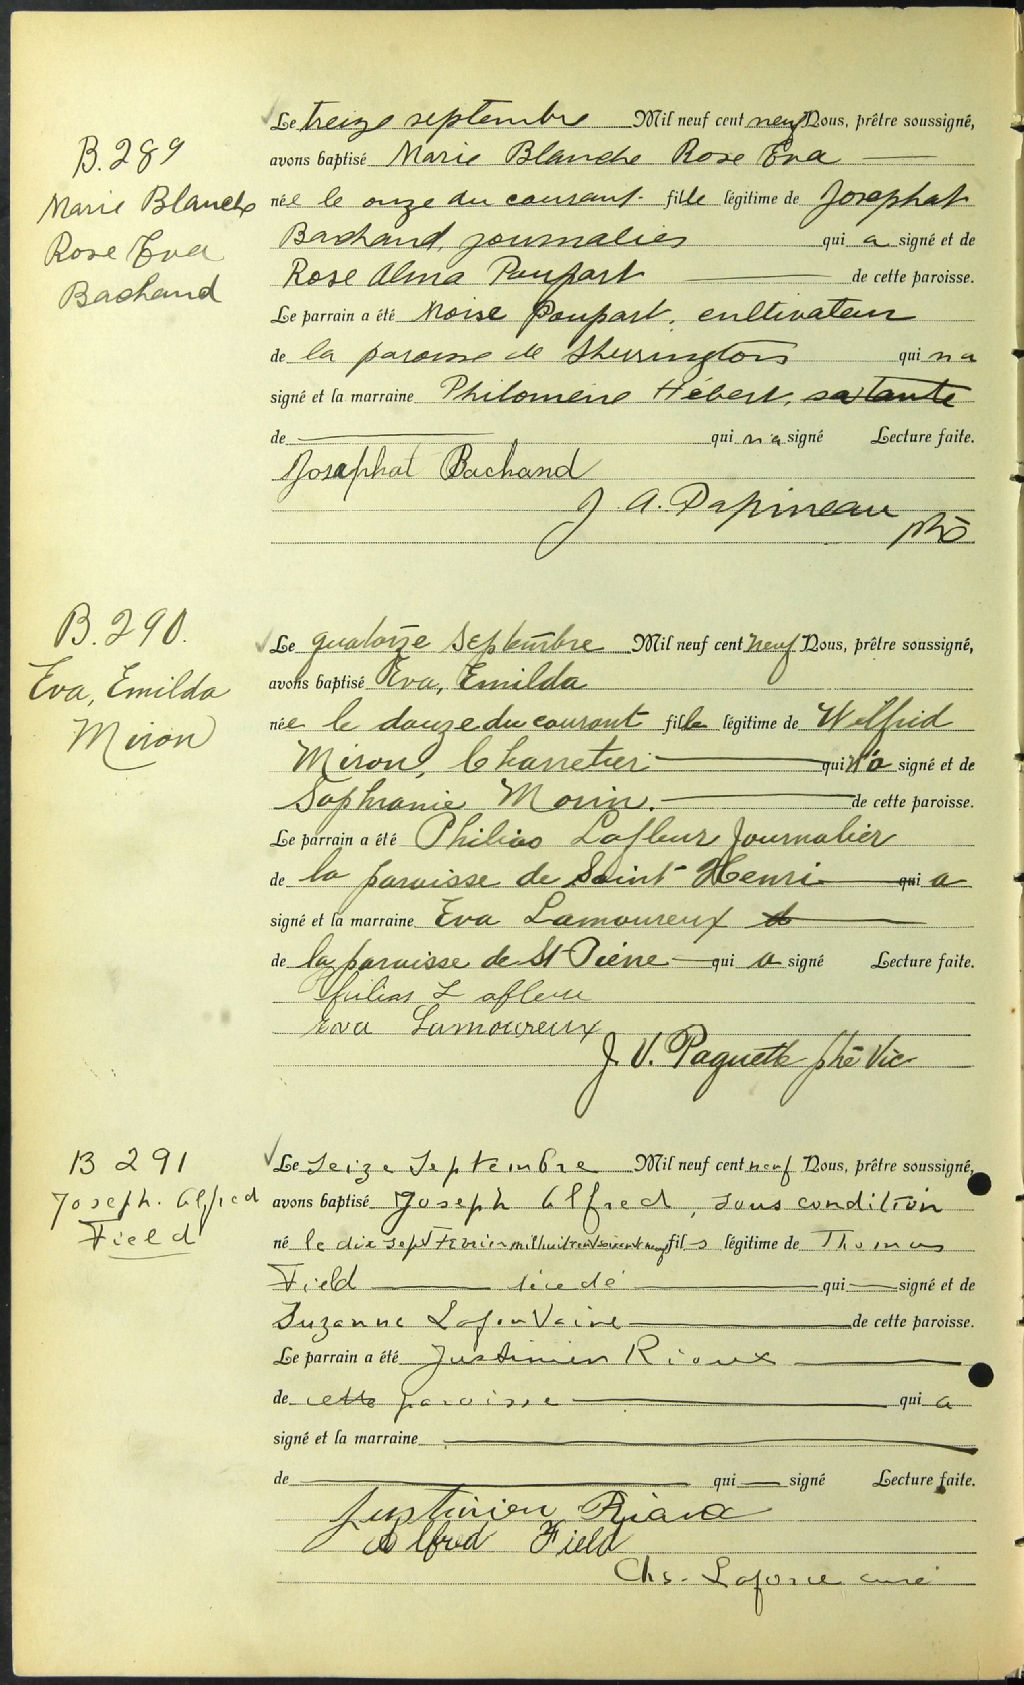 B. 289
Marie Blanche
Rose Eva
Bachand
Le treize septembre Mil neuf cent neuf Nous, prêtre soussigné,
avons baptisé Marie Blanche Rose Eva
née le onze du courant. fille légitime de Josephat
Bachand, journalier qui a signé et de
Rose Alma Poupart de cette paroisse.
Le parrain a été Moise Poupart, cultivateur
de la paroisse de Sherrington qui n'a
signé et la marraine Philomène Hébert, sa tante
de qui n'a signé Lecture faite.
Josaphat Bachand
J. A. Papineau ptre
B. 290.
Eva, Emilda
Miron
Le quatorze Septembre Mil neuf cent neuf Nous, prêtre soussigné,
avons baptisé Eva, Emilda
née le douze du courant fille légitime de Wilfrid
Miron, Charretier qui n'a signé et de
Sophranie Morin. de cette paroisse.
Le parrain a été Philias Lafleur Journalier
de la paroisse de Saint Henri qui a
signé et la marraine Eva Lamoureux
de la paroisse de St Pierre qui a signé Lecture faite.
Philias Lafleur
Eva Lamoureux
J. V. Paquette ptre Vic
B 291
Joseph. Alfred
Field
Le seize Septembre Mil neuf cent neuf Nous, prêtre soussigné,
avons baptisé Joseph Alfred, sous condition
né le dix sept Fevrier mil huit cent soixante neuf fils légitime de Thomas
Field décédé qui signé et de
Suzanne Lafontaine de cette paroisse.
Le parrain a été Justinien Rioux
de cette paroisse qui a
signé et la marraine
de qui signé Lecture faite.
Justinien Rioux
Alfred Field
Chs. Laforce curé